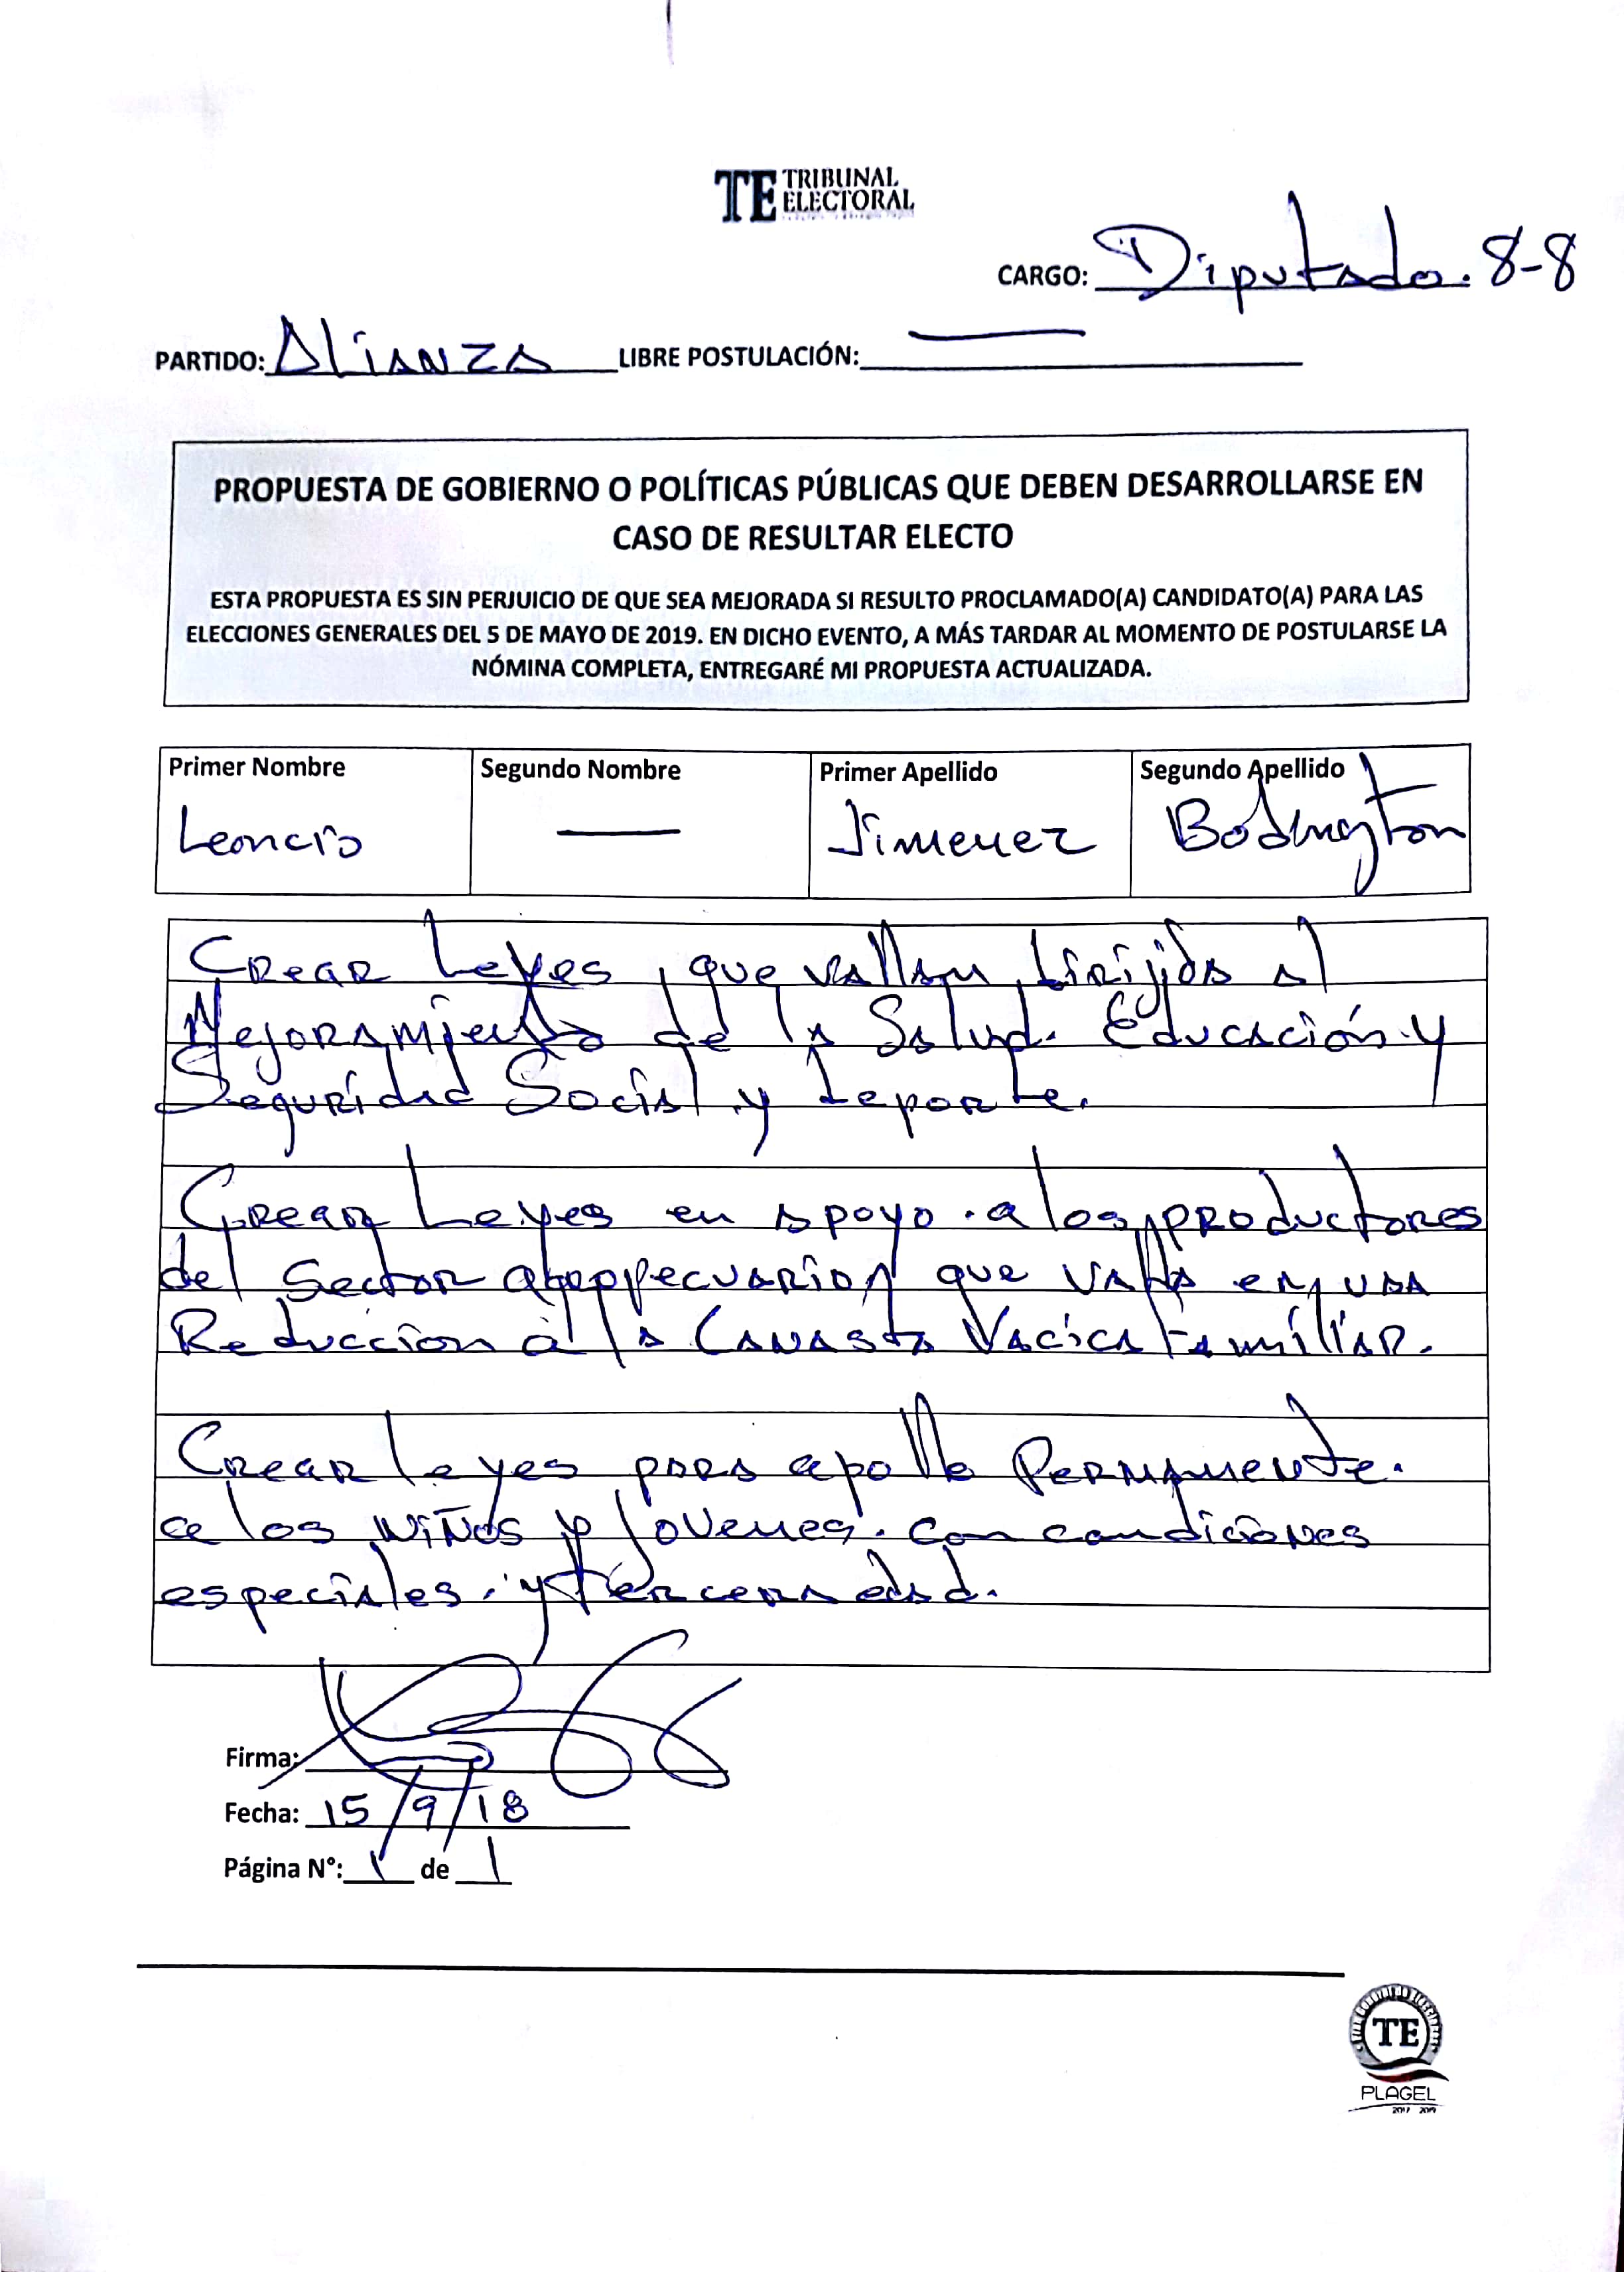 TE TRIBUNAL
ELECTORAL
CARGO: Diputado. 8-8
PARTIDO: Alianza LIBRE POSTULACIÓN: —
PROPUESTA DE GOBIERNO O POLÍTICAS PÚBLICAS QUE DEBEN DESARROLLARSE EN
CASO DE RESULTAR ELECTO
ESTA PROPUESTA ES SIN PERJUICIO DE QUE SEA MEJORADA SI RESULTO PROCLAMADO(A) CANDIDATO(A) PARA LAS
ELECCIONES GENERALES DEL 5 DE MAYO DE 2019. EN DICHO EVENTO, A MÁS TARDAR AL MOMENTO DE POSTULARSE LA
NÓMINA COMPLETA, ENTREGARÉ MI PROPUESTA ACTUALIZADA.
Primer Nombre Segundo Nombre Primer Apellido Segundo Apellido
Leoncio — Jimenez Bodington
Crear Leyes, que vallan dirijida al
Mejoramiento de la Salud. Educación y
Seguridad Social y Deporte.
Crear Leyes en apoyo a los productores
del Sector agropecuario que valla en una
Reduccion a la Canasta Vacica Familiar.
Crear leyes para apollo Permanente.
a los niños y Jovenes. con condiciones
especiales. y tercera edad.
Firma:
Fecha: 15/9/18
Página N°: 1 de 1
TE
PLAGEL
2017 2019